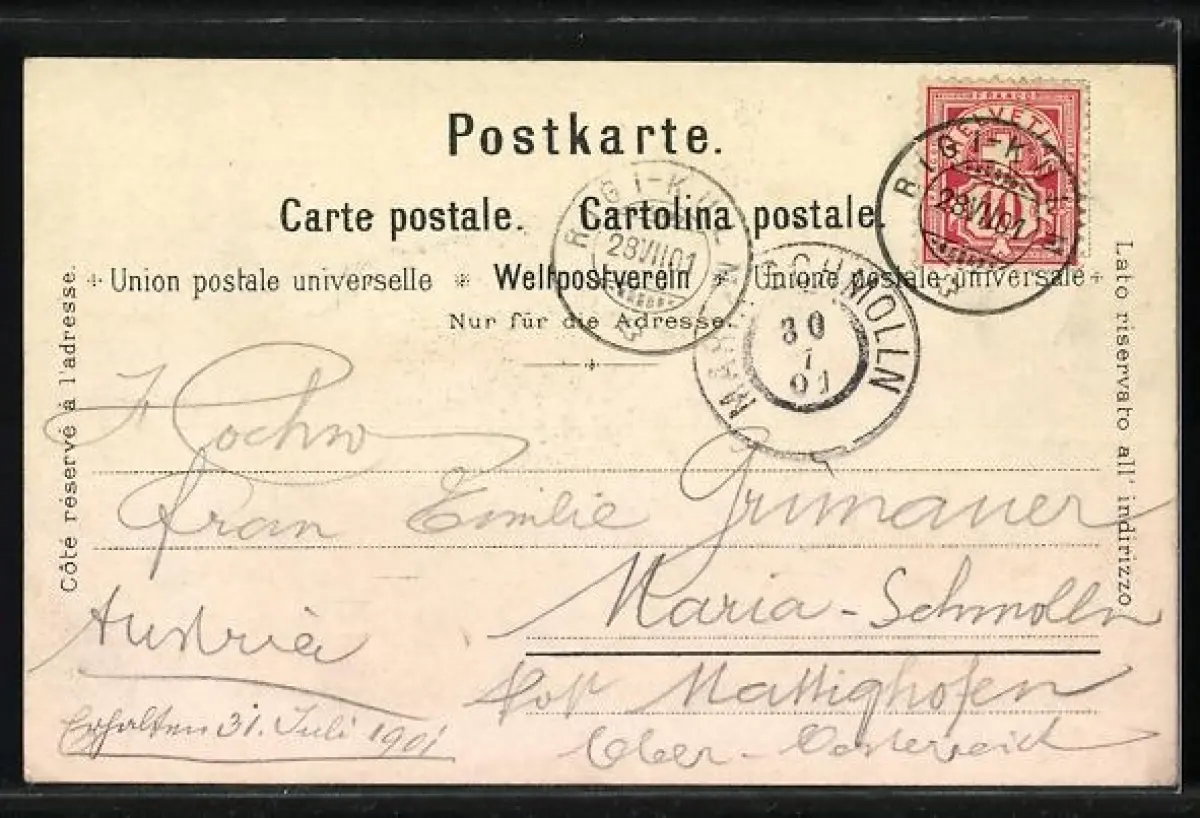 FRANCO
HELVETIA
10
Postkarte.
RIGI-KULM
28.VII.01
RIGI-KULM
28.VII.01
Carte postale. Cartolina postale.
Union postale universelle * Weltpostverein * Unione postale universale
Nur für die Adresse.
MARIA SCHMOLLN
30
7
01
Côte réservé à l'adresse.
Lato riservato all' indirizzo
Frau Emilie Grünauer
Maria-Schmolln
Post Mattighofen
Ober-Oesterreich
Austria
Erhalten 31. Juli 1901